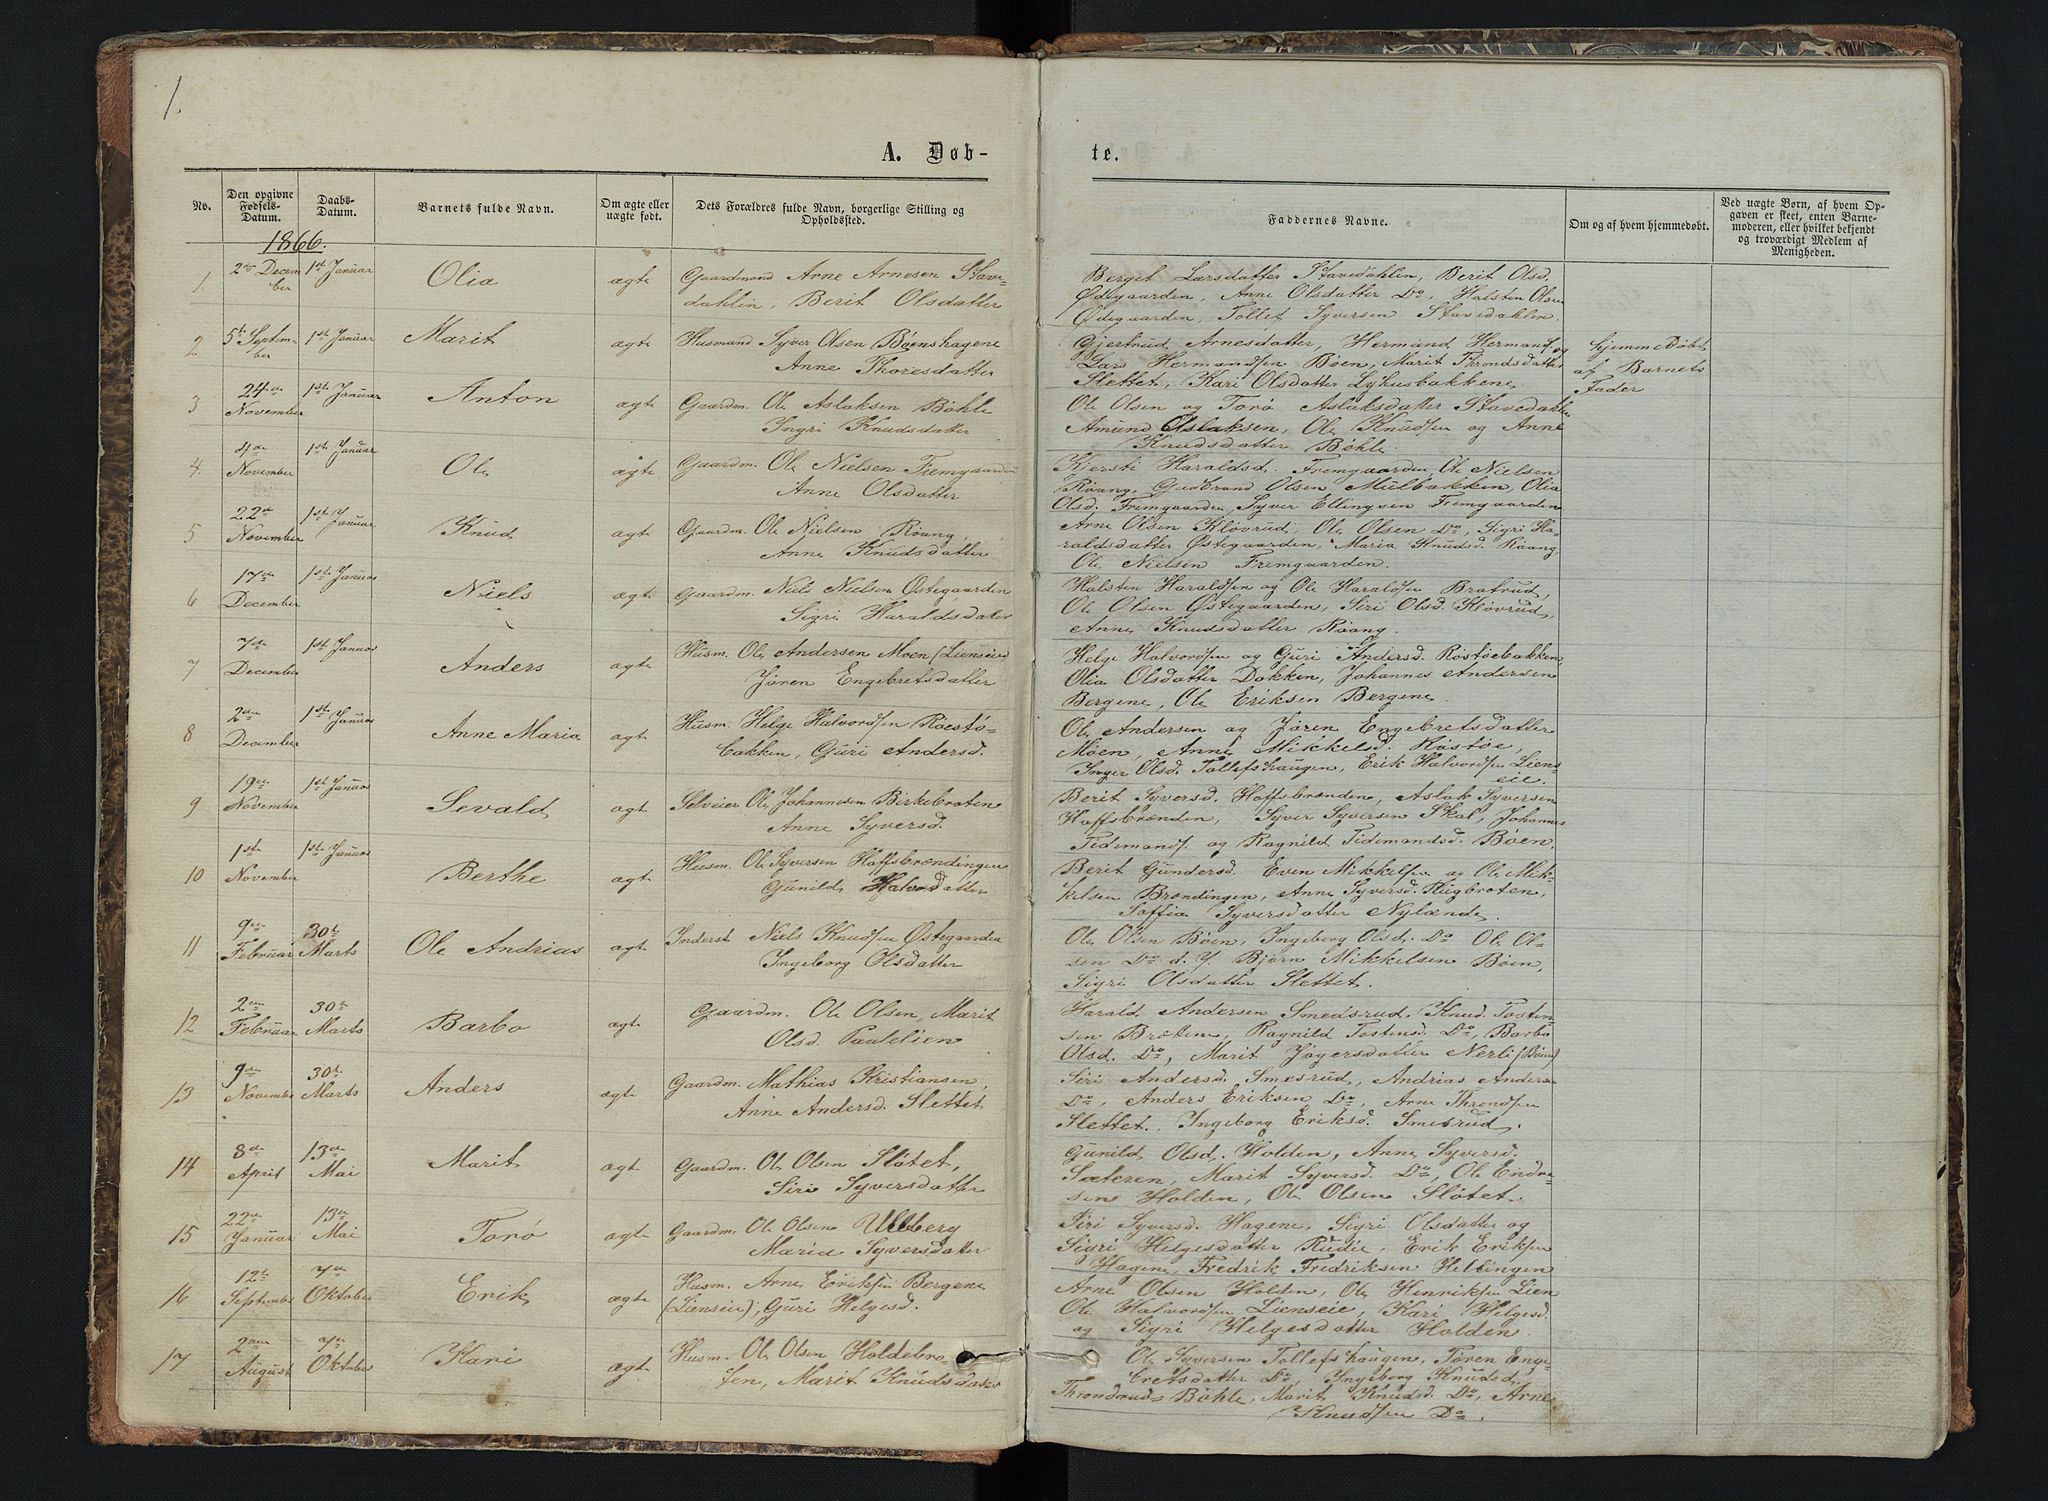 1.
A. Døb-
te.
No.
Den opgivne Fødsels-Datum.
Daabs-Datum.
Barnets fulde Navn.
Om ægte eller uægte født.
Dets Forældres fulde Navn, borgerlige Stilling og Opholdssted.
Faddernes Navne.
Om og af hvem hjemmedøbt.
Ved uægte Børn, af hvem Opgaven er skeet, enten Barnemoderen, eller hvilket bekjendt og troværdigt Medlem af Menigheden.
1866.
1. 2den December 1st Januar Olia ægte Gaardmand Arne Arnesen Stave-
dahlen, Berit Olsdatter
Berget Larsdatter Stavedahlen, Berit Olsd.
Ødegaarden, Anne Olsdatter Do, Halsten Olsen
Ødegaarden, Tollef Syversen Stavedahlen.
2 5te September 1st Januar Marit ægte Husmand Syver Olsen Bøenshagene
Anne Thoresdatter
Gjertrud Arnesdatter, Hermund Hermundsen og
Lars Hermandsen Bøen, Marit Throndsdatter
Slettet, Kari Olsdatter Lyhusbakkene
hjemmedøbt
af Barnets
Fader
3 24de November 1st Januar Anton ægte Gaardm. Ole Aslaksen Bøhle
Ingri Knudsdatter
Ole Olsen og Torø Aslaksdatter Stavedahlen
Amund Aslaksen, Ole Knudsen og Anne
Knudsdatter Bøhle.
4. 4de November 1st Januar Ole ægte Gaardm. Ole Nielsen Fremgaarden
Anne Olsdatter
Kjersti Haraldsd. Fremgaarden, Ole Nielsen
Røang, Gudbrand Olsen Mulbakken, Olia
Olsd. Fremgaarden, Syver Ellingsen Fremgaarden
5 22de November 1st Januar Knud ægte Gaardm. Ole Nielsen Røang,
Anne Knudsdatter
Arne Olsen Kløvrud, Ole Olsen Do, Sigri Ha-
raldsdatter Østegaarden, Maria Knudsd. Røang
Ole Nielsen Fremgaarden.
6 17de December 1st Januar Niels ægte Gaardm. Niels Nielsen Østegaarden
Sigri Haraldsdatter
Halsten Haraldsen og Ole Haraldsen Bratrud,
Ole Olsen Østegaarden, Siri Olsd. Kløvrud,
Anne Knudsdatter Røang.
7 7de December 1st Januar Anders ægte Husm. Ole Andersen Moen (Lienseie)
Jøren Engebretsdatter
Helge Halvordsen og Guri Andersd. Røstøebakken
Olia Olsdatter Dokken, Johannes Andersen
Bergene, Ole Eriksen Bergene.
8 2den December 1st Januar Anne Maria ægte Husm. Helge Halvordsen Røestø-
bakken, Guri Andersd.
Ole Andersen og Jøren Engebretsdatter
Moen, Anne Mikkelsd. Røstøe,
Inger Olsd. Tollefshaugen, Erik Halvordsen Liens-
eie.
9 19de November 1st Januar Sevald ægte Selveier Ole Johannesen Birkebraten
Anne Syversd.
Berit Syversd. Hoffsbrænden, Aslak Syversen
Hoffsbrænden, Syver Syversen Skal, Johannes
Tidemands. og Ragnild Tidemandsd. Bøen.
10 1st November 1st Januar Berthe ægte Husm. Ole Syversen Hoffsbrændingen
Gunild Halvordsdatter
Berit Gundersd. Even Mikkelsen og Ole Mik-
kelsen Brændingen, Anne Syversd. Hugbroten,
Soffia Syversdatter Nylænde.
11 9de Februar 30te Marts Ole Andrias ægte Inderst Niels Knudsen Østegaarden
Ingeborg Olsdatter
Ole Olsen Bøen, Ingeborg Olsd. Do Ole Ol-
sen Do d. Y Bjørn Mikkelsen Bøen,
Sigri Olsdatter Slettet.
12 2den Februar 30te Marts Barbo ægte Gaardm. Ole Olsen, Marit
Olsd. Paalelien
Harald Andersen Smedsrud, Knud Tosten-
sen Bræten, Ragnild Tostensd. Do, Barbo
Olsd. Do, Marit Jøgersdatter Nerli (Bøen)
13 9de November 30te Marts Anders ægte Gaardm. Mathias Kristiansen,
Anne Andersd. Slettet
Siri Andersd. Smesrud, Andrias Anders.
Do, Anders Eriksen Do, Arne Throndsen
Slettet. Ingeborg Eriksd. Smesrud.
14 8de April 13de Mai Marit ægte Gaardm. Ole Olsen Sløtet,
Siri Syversdatter
Gunild Olsd. Holden, Anne Syversd.
Sæteren, Marit Syversd. Do, Ole Endre-
sen Holden, Ole Olsen Sløtet.
15 22de Januar 13de Mai Torø ægte Gaardm. Ole Olsen Ulberg
Maria Syversdatter
Siri Syversd. Hagene, Sigri Olsdatter og
Sigri Helgesdatter Rudie, Erik Eriksen
Hagene, Fredrik Fredriksen Hellingen
16 12te September 7de Oktober Erik ægte Husm. Arne Eriksen Bergene
(Lienseie), Guri Helgesd.
Arne Olsen Holden, Ole Henriksen Lien
Ole Halvordsen Lienseie, Kari Helgesd
og Sigri Helgesdatter Holden.
17 2den August 7de Oktober Kari ægte Husm. Ole Olsen Holdebro-
ten, Marit Knudsdatter
Ole Syversen Tollefshaugen, Tøren Enge-
bretsdatter Do, Ingeborg Knudsd.
Throndrud= Bøhle, Marit Knudsd. Do, Arne
Knudsen Do.